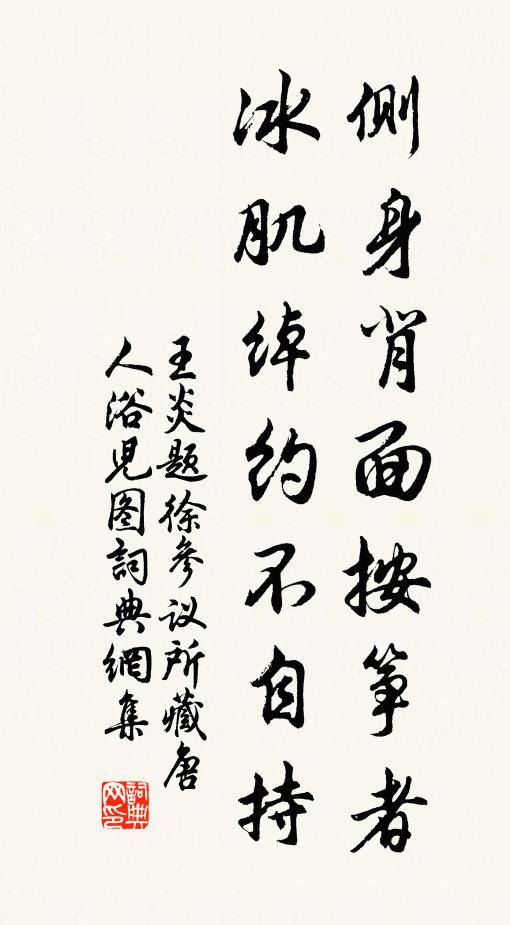 側身背面按筝者
冰肌绰约不自持
王炎题徐參议所藏唐
人浴児图詞典網集
詞典
网印